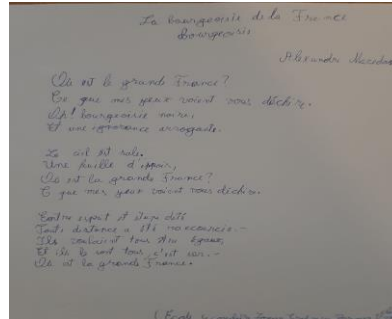 La bourgeoisie de la France
Bourgeoisie
Alexandre
Où est la grande France?
Ce que mes yeux voient vous déchire.
Ah! bourgeoisie noire,
Et une ignorance arrogante.
Le ciel est sale.
Une feuille d'espoir,
Où est la grande France?
C que mes yeux voient vous déchire.
Entre esprit et
distance a été
Ils voulaient tous être égaux,
Et ils le sont tous, c'est
Où est la grande France.